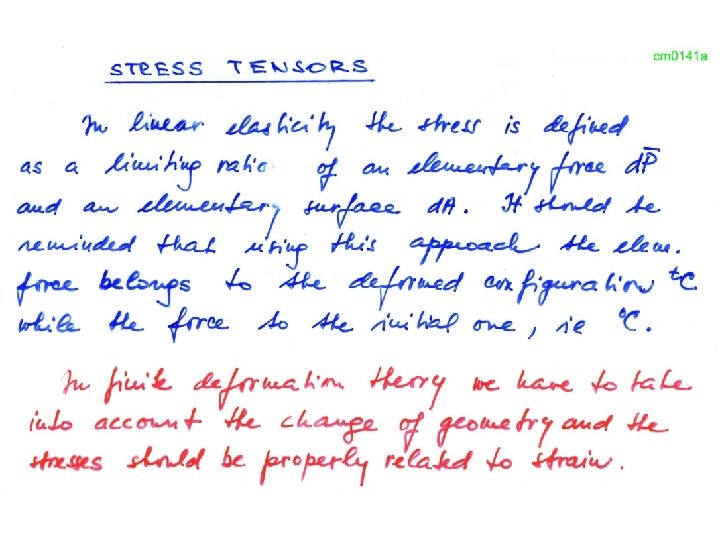 cm0141a
STRESS TENSORS
In linear elasticity the stress is defined
as a limiting ratio of an elementary force dP̄
and an elementary surface dA. It should be
reminded that using this approach the elem.
force belongs to the deformed configuration ᵗC
while the force to the initial one, ie ⁰C.
In finite deformation theory we have to take
into account the change of geometry and the
stresses should be properly related to strain.